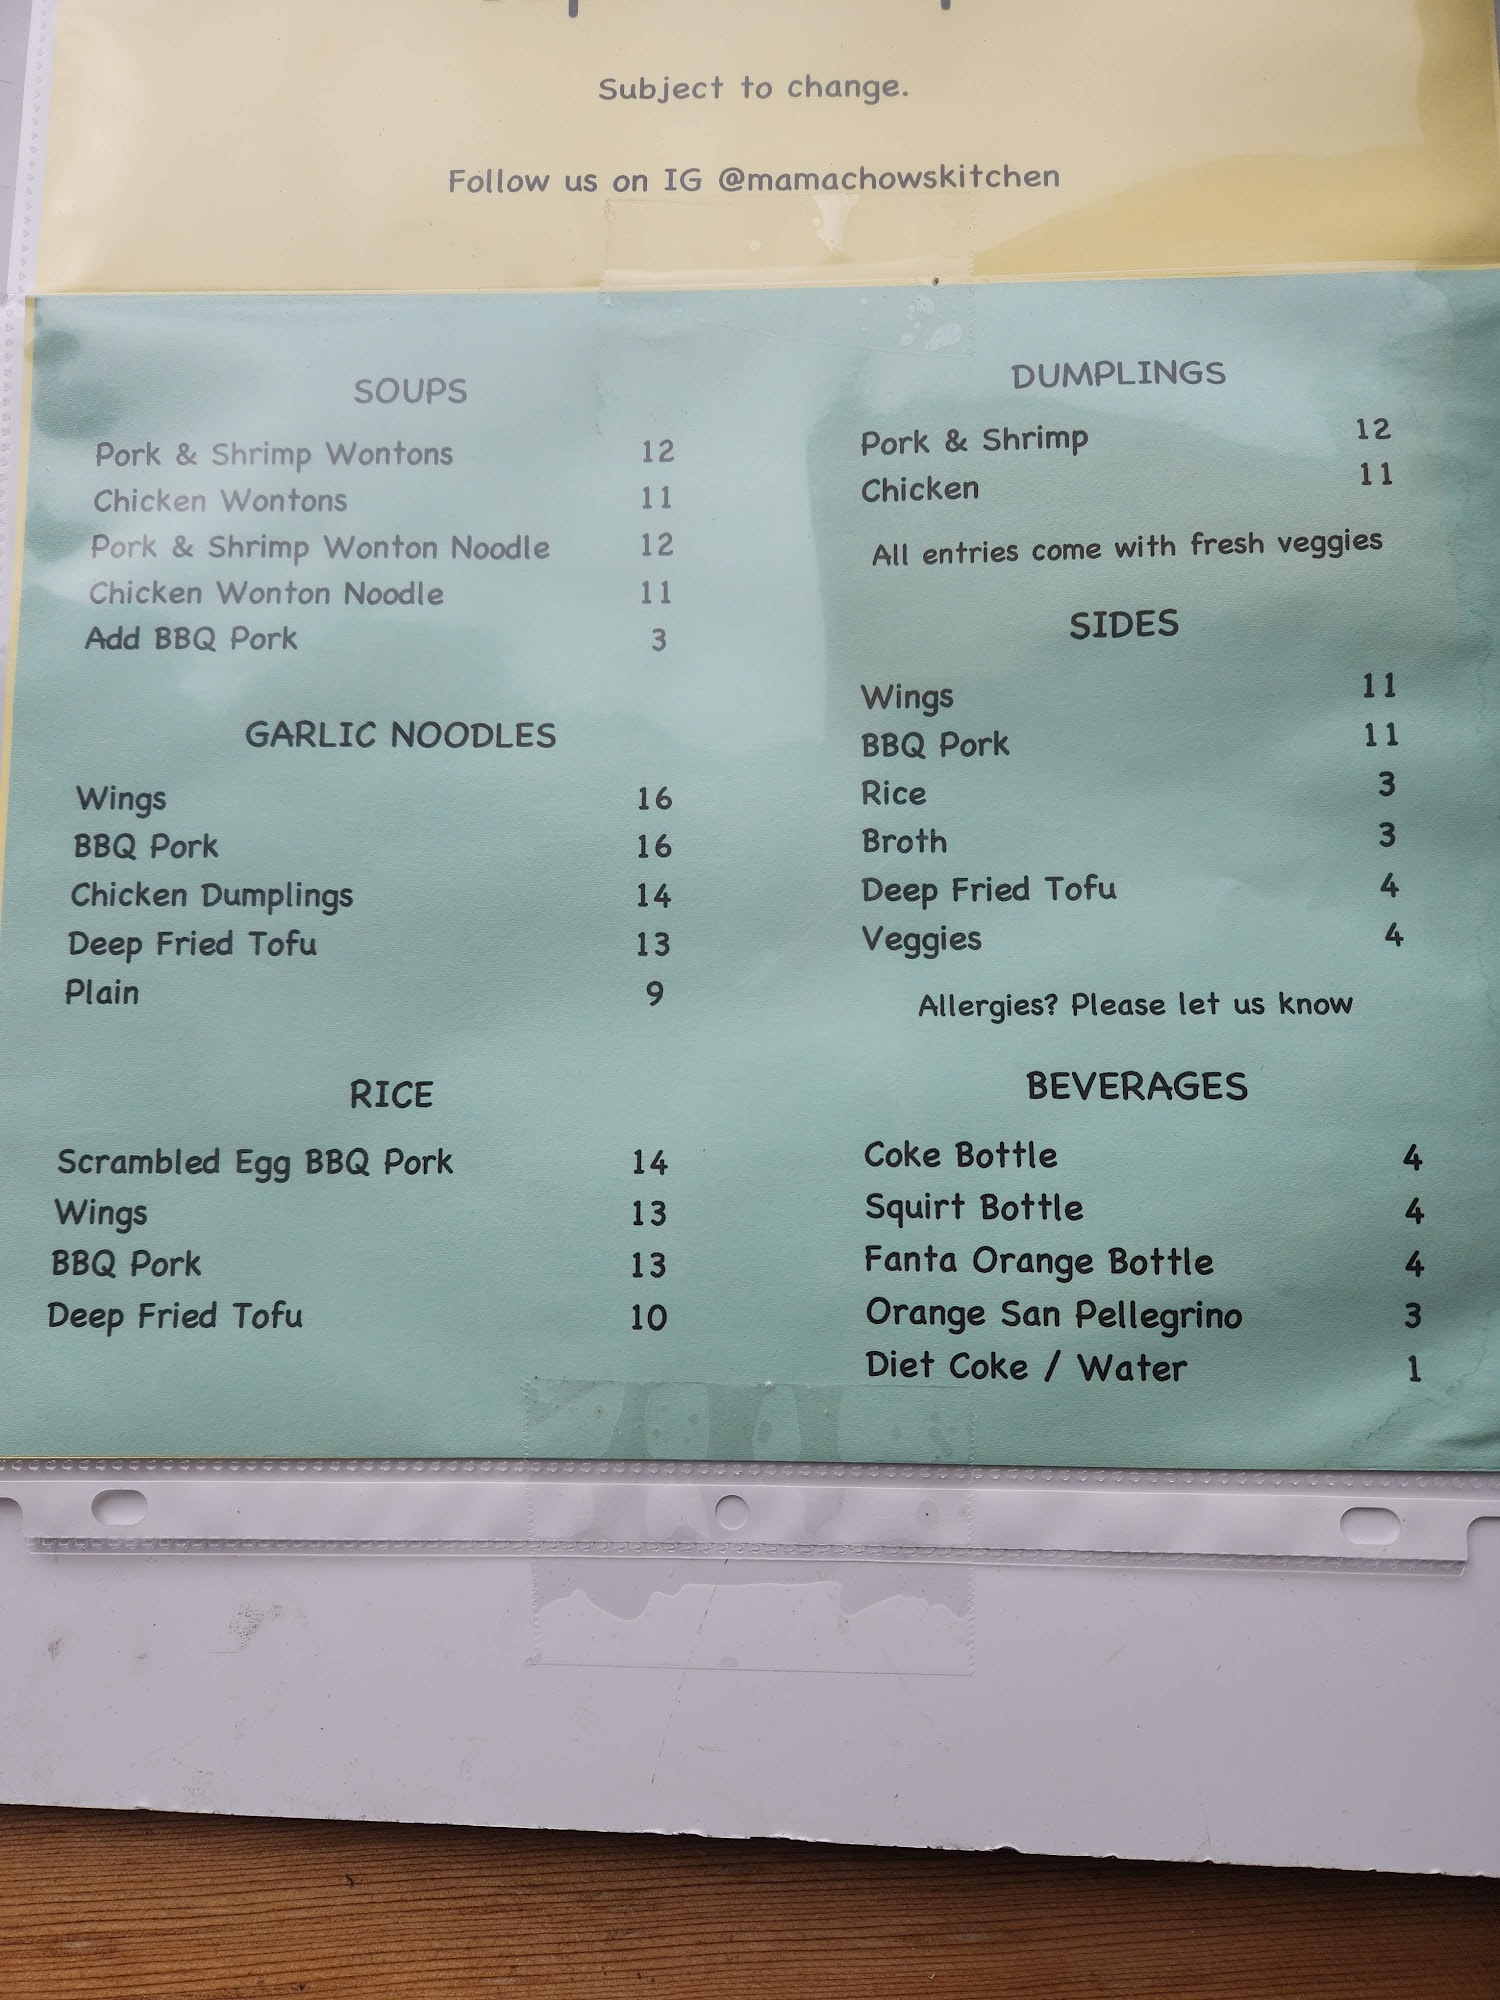 Subject to change.
Follow us on IG @mamachowskitchen
SOUPS
Pork & Shrimp Wontons 12
Chicken Wontons 11
Pork & Shrimp Wonton Noodle 12
Chicken Wonton Noodle 11
Add BBQ Pork 3
GARLIC NOODLES
Wings 16
BBQ Pork 16
Chicken Dumplings 14
Deep Fried Tofu 13
Plain 9
RICE
Scrambled Egg BBQ Pork 14
Wings 13
BBQ Pork 13
Deep Fried Tofu 10
DUMPLINGS
Pork & Shrimp 12
Chicken 11
All entries come with fresh veggies
SIDES
Wings 11
BBQ Pork 11
Rice 3
Broth 3
Deep Fried Tofu 4
Veggies 4
Allergies? Please let us know
BEVERAGES
Coke Bottle 4
Squirt Bottle 4
Fanta Orange Bottle 4
Orange San Pellegrino 3
Diet Coke / Water 1